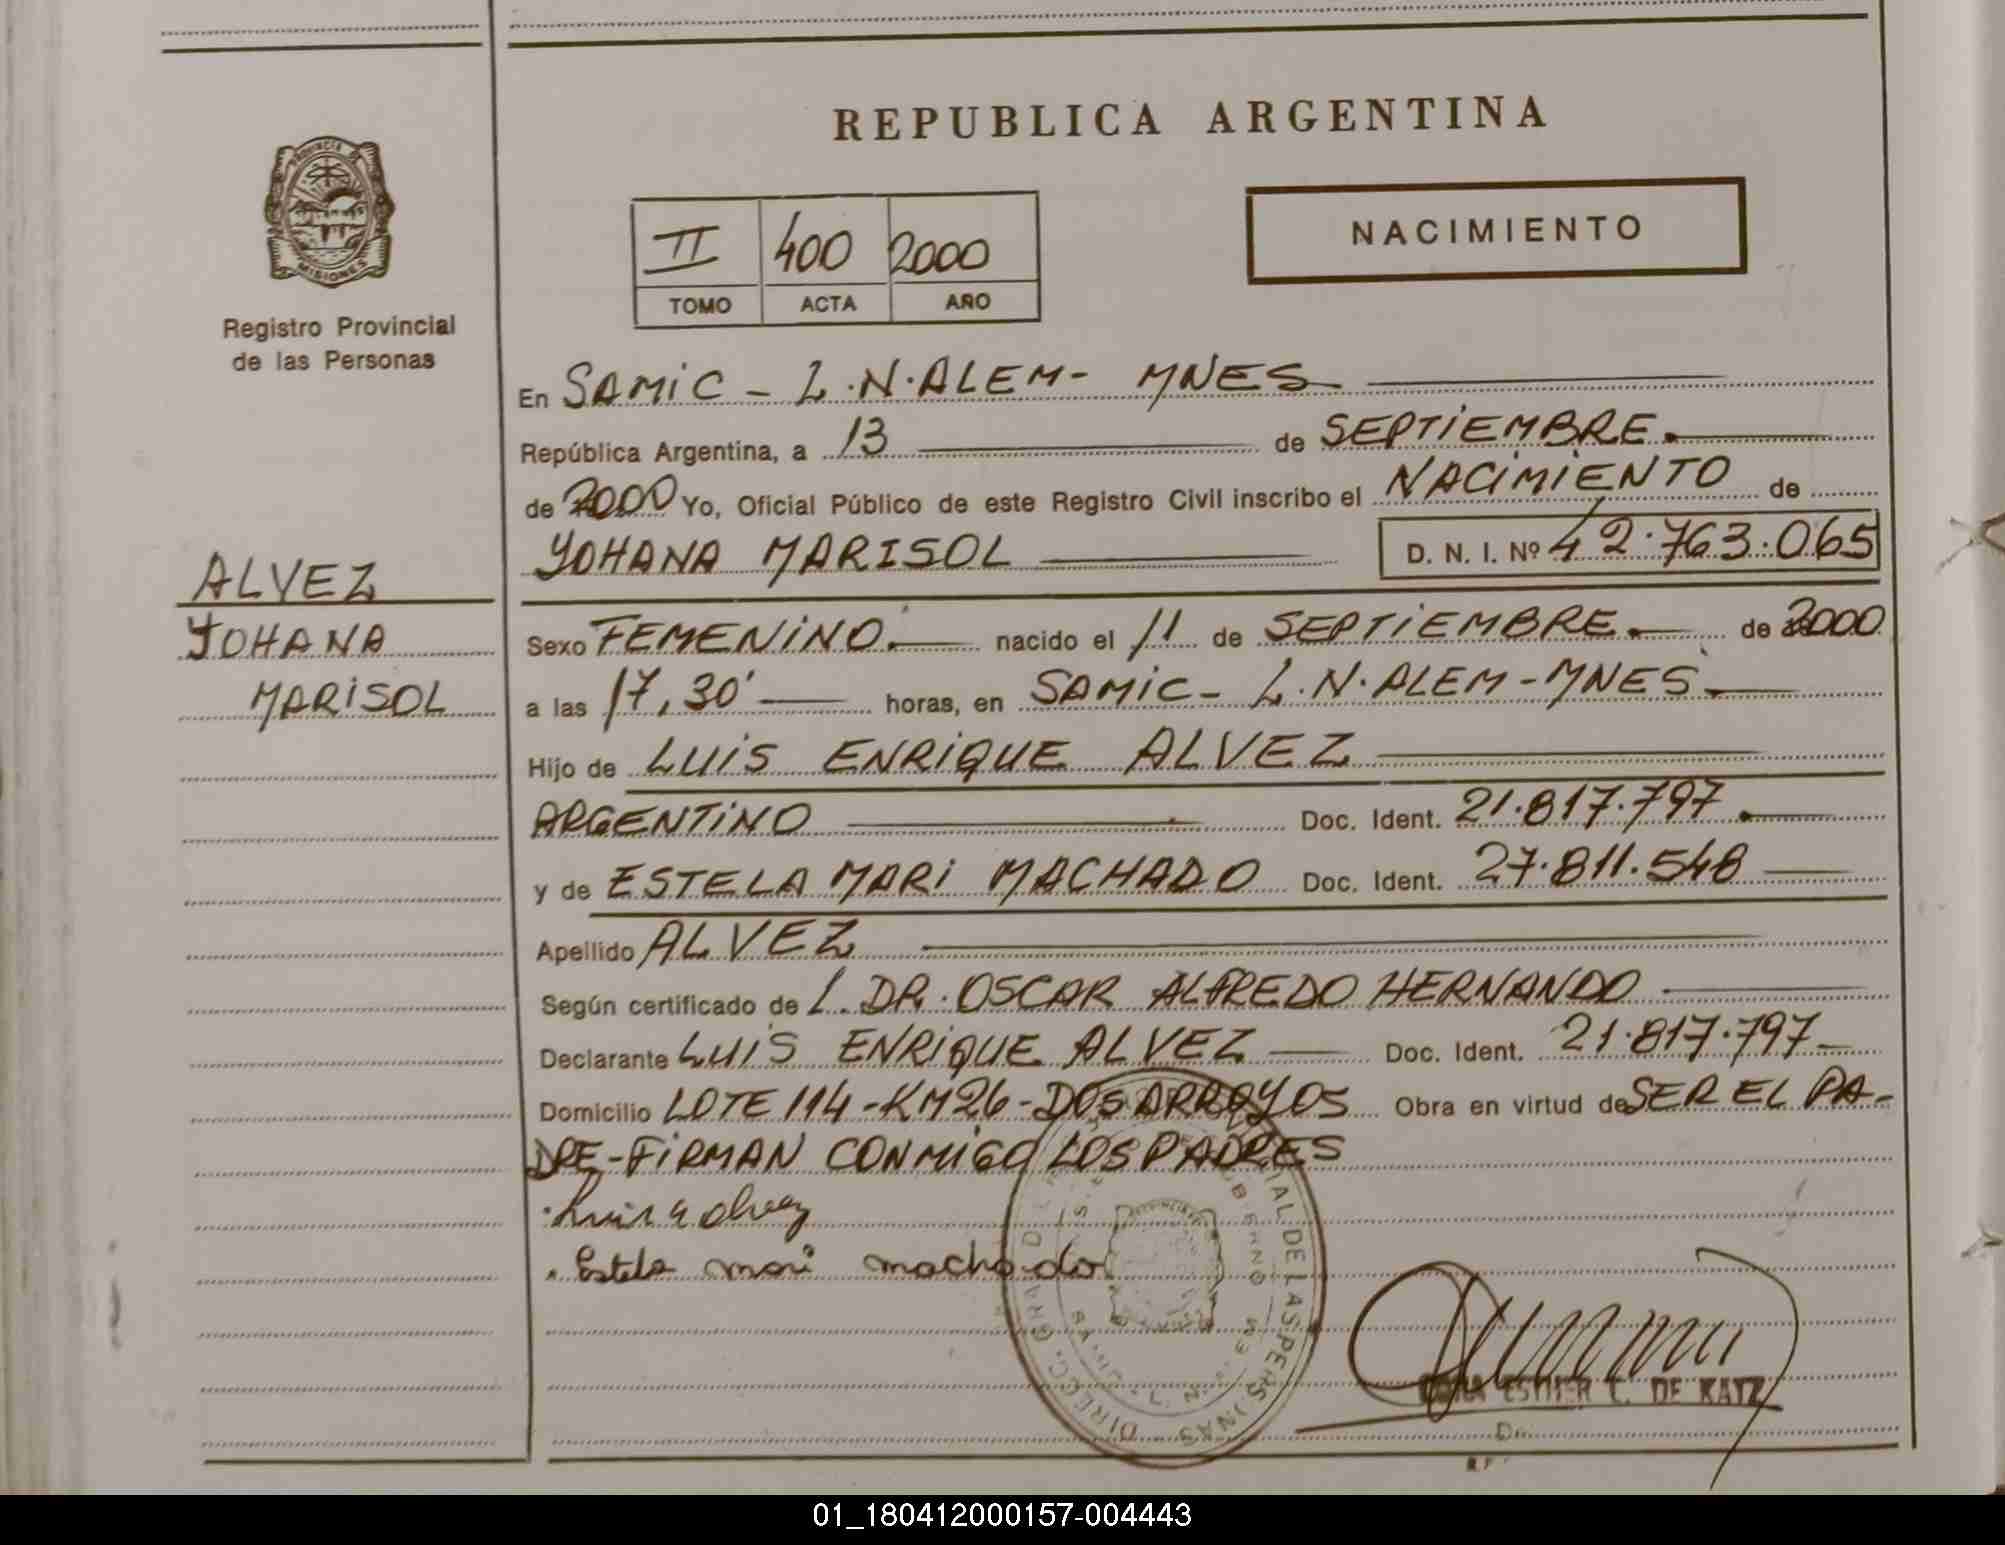 REPUBLICA ARGENTINA
PROVINCIA DE
MISIONES
Registro Provincial
de las Personas
II 400 2000
TOMO ACTA AÑO
NACIMIENTO
En SAMIC - L.N.ALEM - MNES
República Argentina, a 13 de SEPTIEMBRE.
de 2000 Yo, Oficial Público de este Registro Civil inscribo el NACIMIENTO de
YOHANA MARISOL D. N. I. Nº 42.763.065
ALVEZ
YOHANA
MARISOL
Sexo FEMENINO. nacido el 11 de SEPTIEMBRE. de 2000
a las 17,30' horas, en SAMIC - L.N.ALEM - MNES.
Hijo de LUIS ENRIQUE ALVEZ
ARGENTINO Doc. Ident. 21.817.797.
y de ESTELA MARI MACHADO Doc. Ident. 27.811.548
Apellido ALVEZ
Según certificado de L. DR. OSCAR ALFREDO HERNANDO
Declarante LUIS ENRIQUE ALVEZ Doc. Ident. 21.817.797
Domicilio LOTE 114 - KM 26 - DOS ARROYOS Obra en virtud de SER EL PA-
DRE - FIRMAN CONMIGO LOS PADRES
Luis e alvez
Estela mari machado
ESTHER C. DE KATZ
01_180412000157-004443